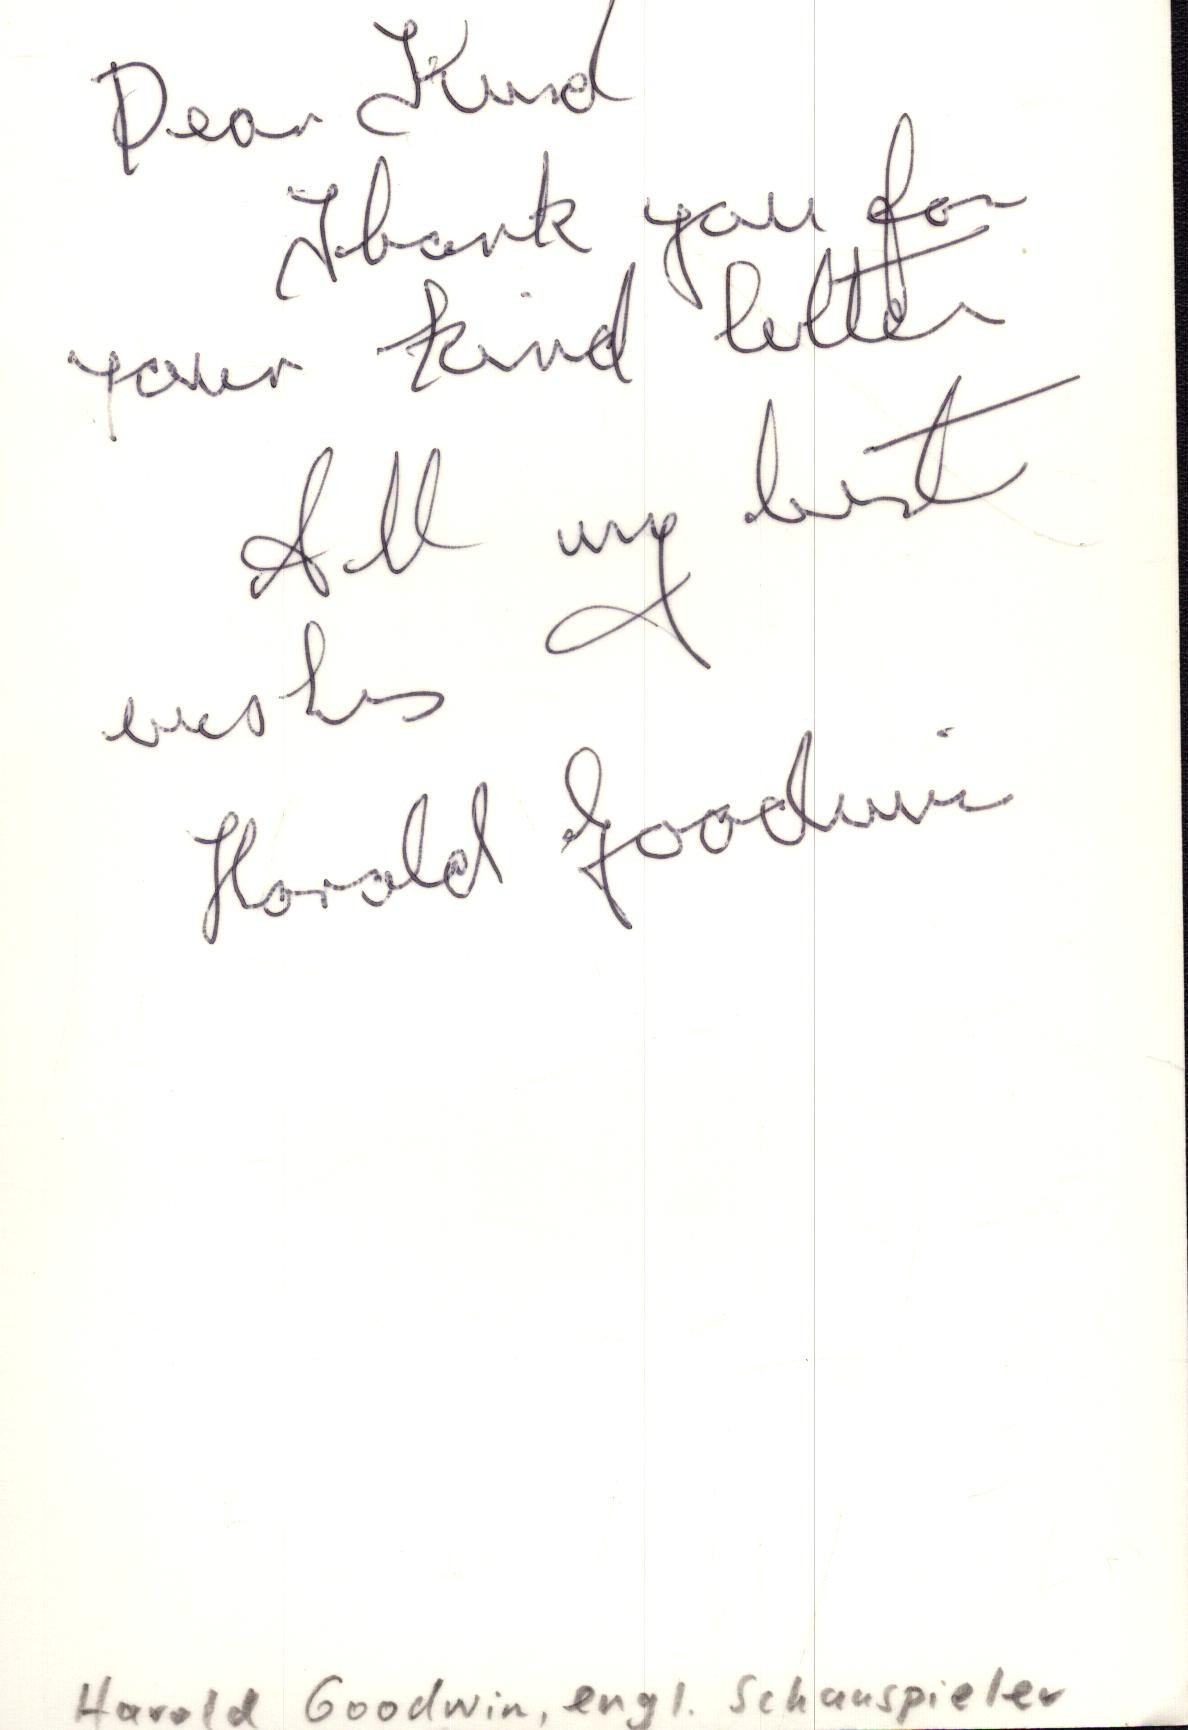 Dear Kurd
Thank you for
your kind letter
All my best
wishes
Harold Goodwin
Harold Goodwin, engl. Schauspieler